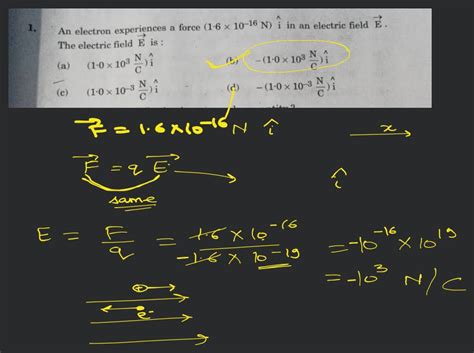 1. An electron experiences a force (1·6 × 10⁻¹⁶ N) î in an electric field E⃗.
The electric field E⃗ is :
(a) (1·0 × 10³ N/C) î (b) –(1·0 × 10³ N/C) î
(c) (1·0 × 10⁻³ N/C) î (d) –(1·0 × 10⁻³ N/C) î
F⃗ = 1.6×10⁻¹⁶ N î x
F⃗ = q E⃗ î
same
E = F/q = 1.6 × 10⁻¹⁶ / -1.6 × 10⁻¹⁹ = -10⁻¹⁶ × 10¹⁹
= -10³ N/C
+
e-